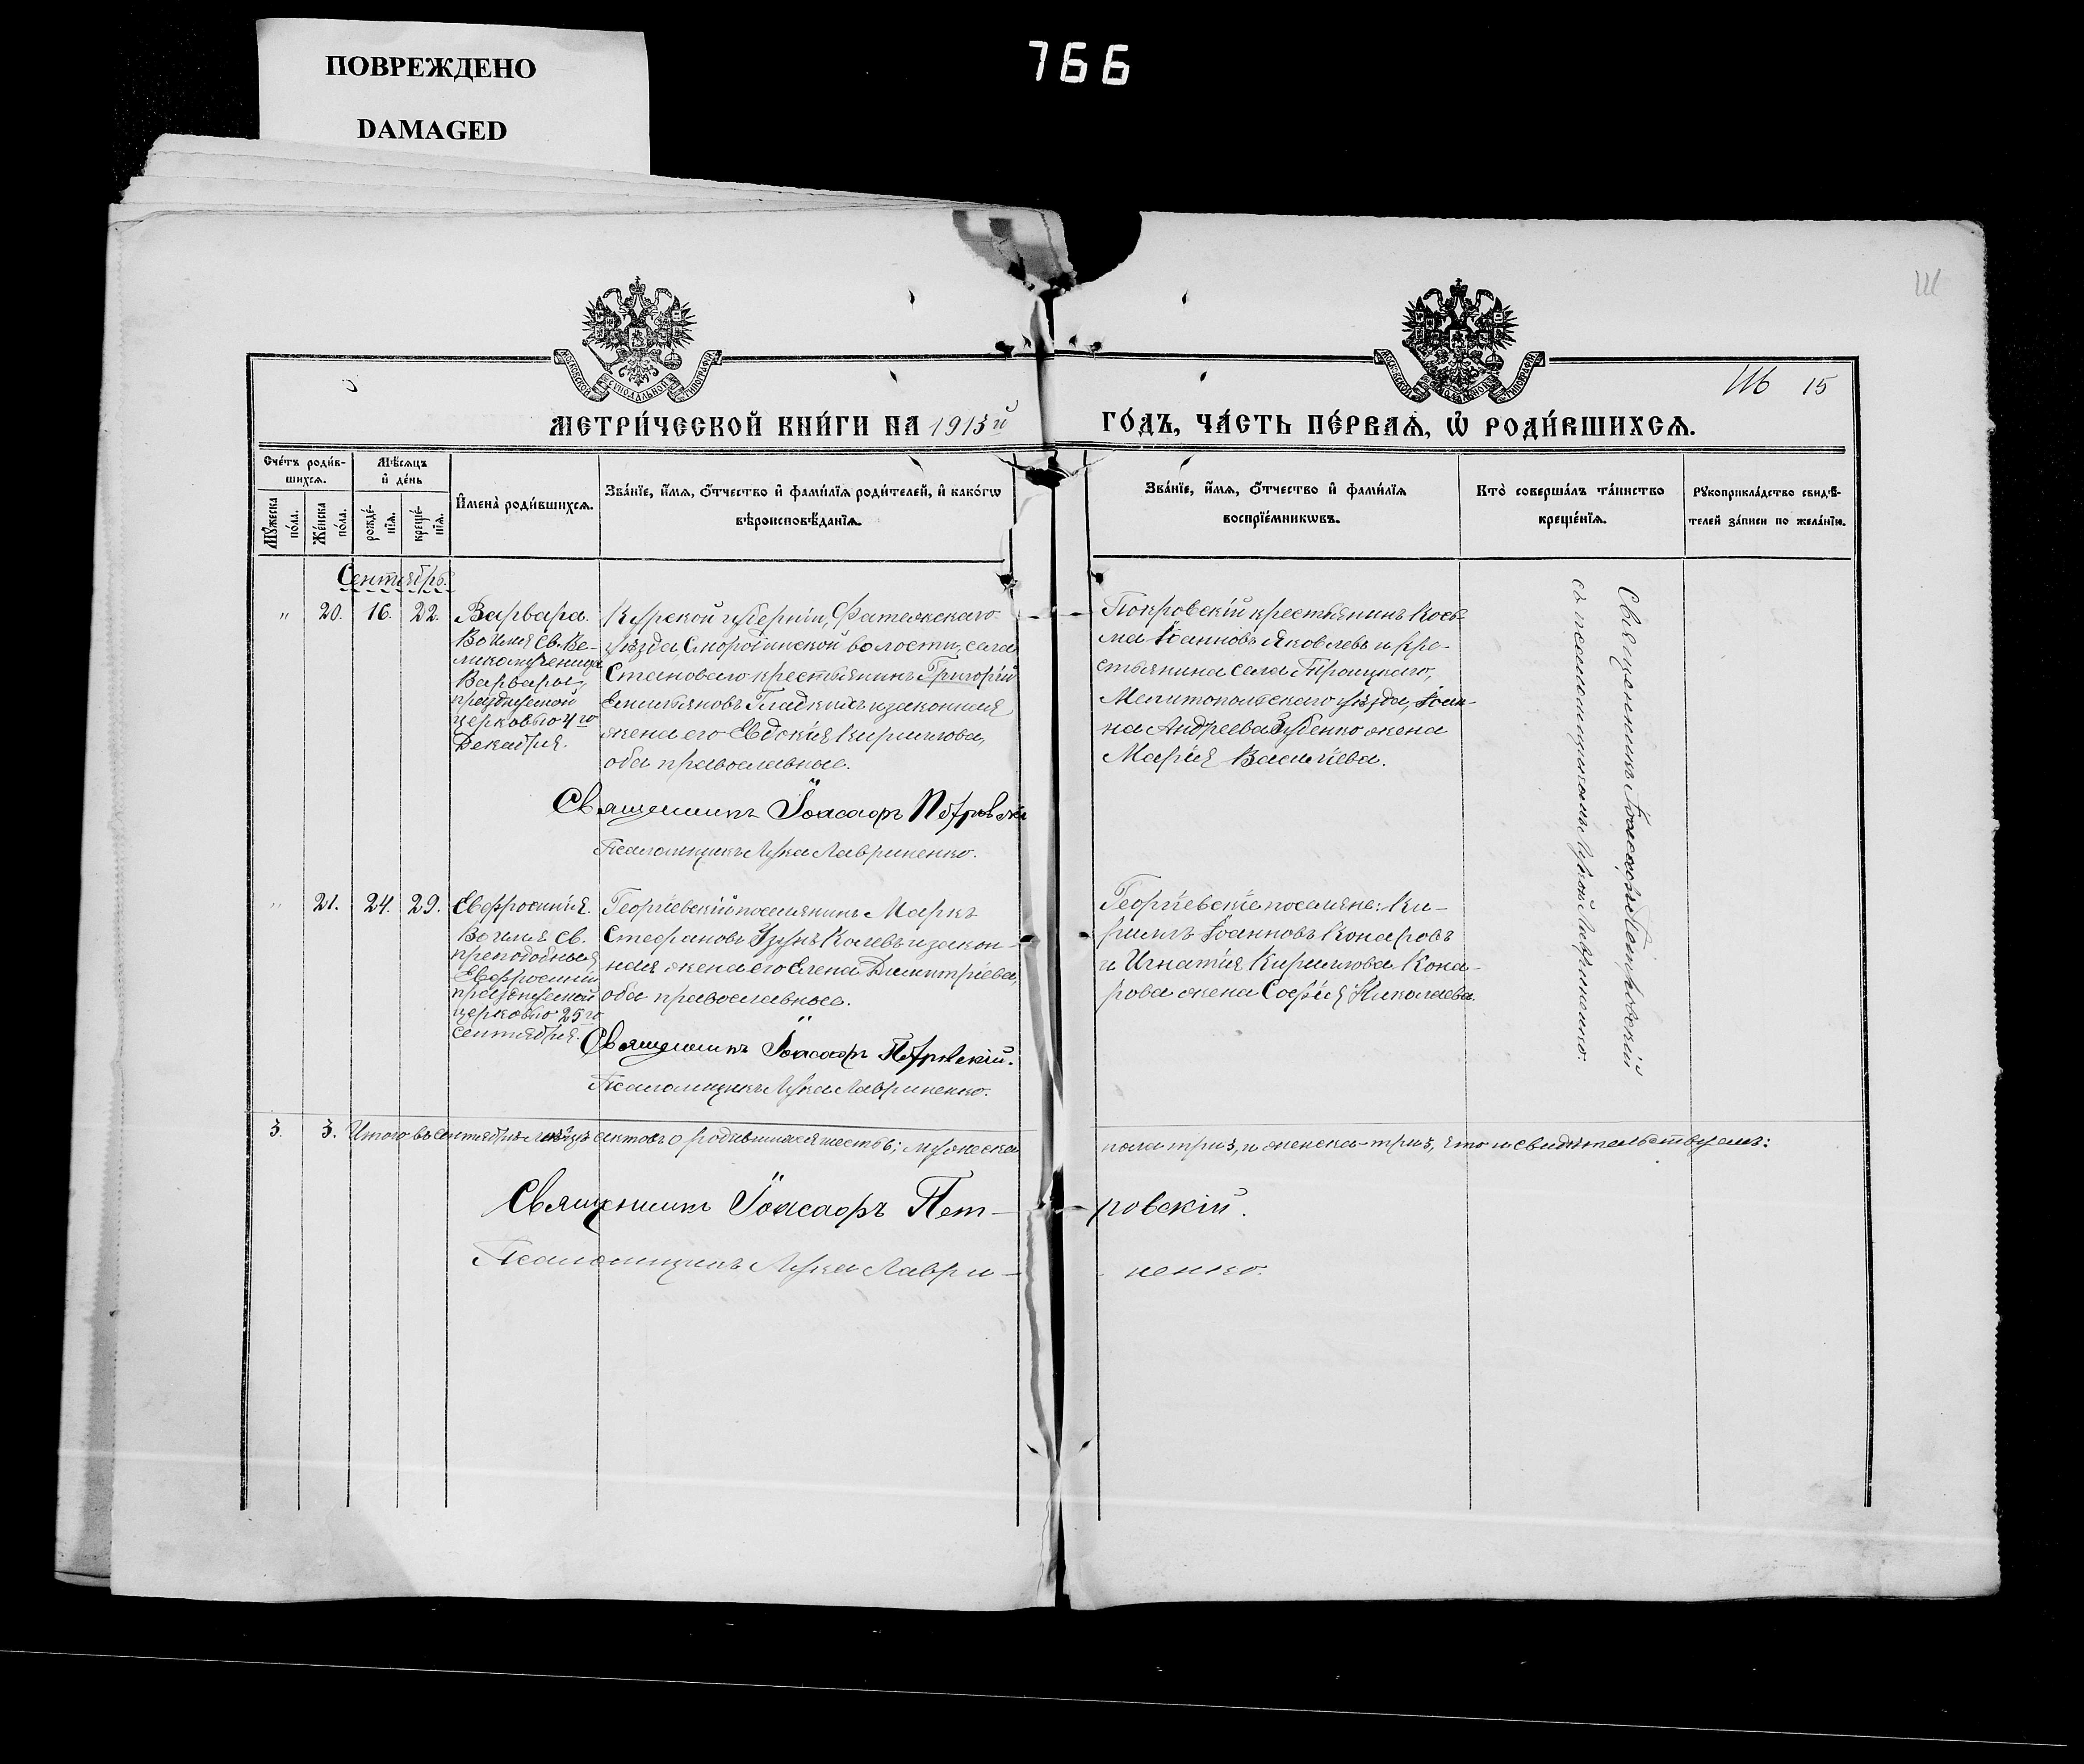 ПОВРЕЖДЕНО
DAMAGED
766
Ш
116 15
МЕТРИ́ЧЕСКОЙ КНИ́ГИ НА 1913й ГО́ДЪ, ЧА́СТЬ ПЕ́РВАѦ, Ѡ҆ РОДИ́ВШИХСѦ.
Сче́тъ роди́в-
шихсѧ.
Мꙋ́жеска
по́ла.
Же́нска
по́ла.
Мѣ́сѧцъ
и҆ де́нь
рожде́-
нїѧ.
креще́-
нїѧ.
И҆мена̀ роди́вшихсѧ.
Зва́нїе, и҆́мѧ, ѻ҆́тчество и҆ фами́лїѧ роди́телей, и҆ како́гѡ
вѣроисповѣ́данїѧ.
Зва́нїе, и҆́мѧ, ѻ҆́тчество и҆ фами́лїѧ
воспрїе́мникѡвъ.
Кто̀ соверша́лъ та́инство
креще́нїѧ.
Рꙋкоприкла́дство свидѣ́-
телей за́писи по жела́нїю.
Сентябрь.
" 20. 16. 22.
Варвара.
Во имя Св. Ве-
ликомученицы
Варвары,
празднуемой
церковью 4го
Декабря.
Курской губерніи, Фатежскаго
уѣзда, Смородинской волости, села
Становаго крестьянинъ Григорій
Емельяновъ Гладкихъ и законная
жена его Евдокія Кириллова,
оба православные.
Священникъ Іоасафъ Петровскі
Псаломщикъ Лука Лавриненко.
Покровскій крестьянинъ Кось-
ма Іоанновъ Яковлевъ и кре-
стьянина села Троицкаго,
Мелитопольскаго уѣзда, Іоан-
на Андреева Зубенко жена
Марія Васильева.
Священникъ Іоасафъ Петровскій
съ псаломщикомъ Лукой Лавриненко.
" 21. 24. 29.
Евфросинія.
Во имя Св.
преподобныя
Евфросиніи
празднуемой
церковью 25го
сентября.
Георгіевскій поселянинъ Маркъ
Стефановъ Узунъ Калевъ и закон-
ная жена его Елена Димитріева,
оба православные.
Священникъ Іоасафъ Петровскій.
Псаломщикъ Лука Лавриненко.
Георгіевскіе поселяне: Ки-
риллъ Іоанновъ Конаровъ
и Игнатія Кириллова Кона-
рова жена Софія Николаева.
3. 3. Итого въ сентябрѣ мѣсяцѣ актовъ о родившихся шесть 6; мужеска пола три 3, и женска-три 3, что и свидѣтельствуемъ:
Священникъ Іоасафъ Пет-ровскій.
Псаломщикъ Лука Лаври-ненко.